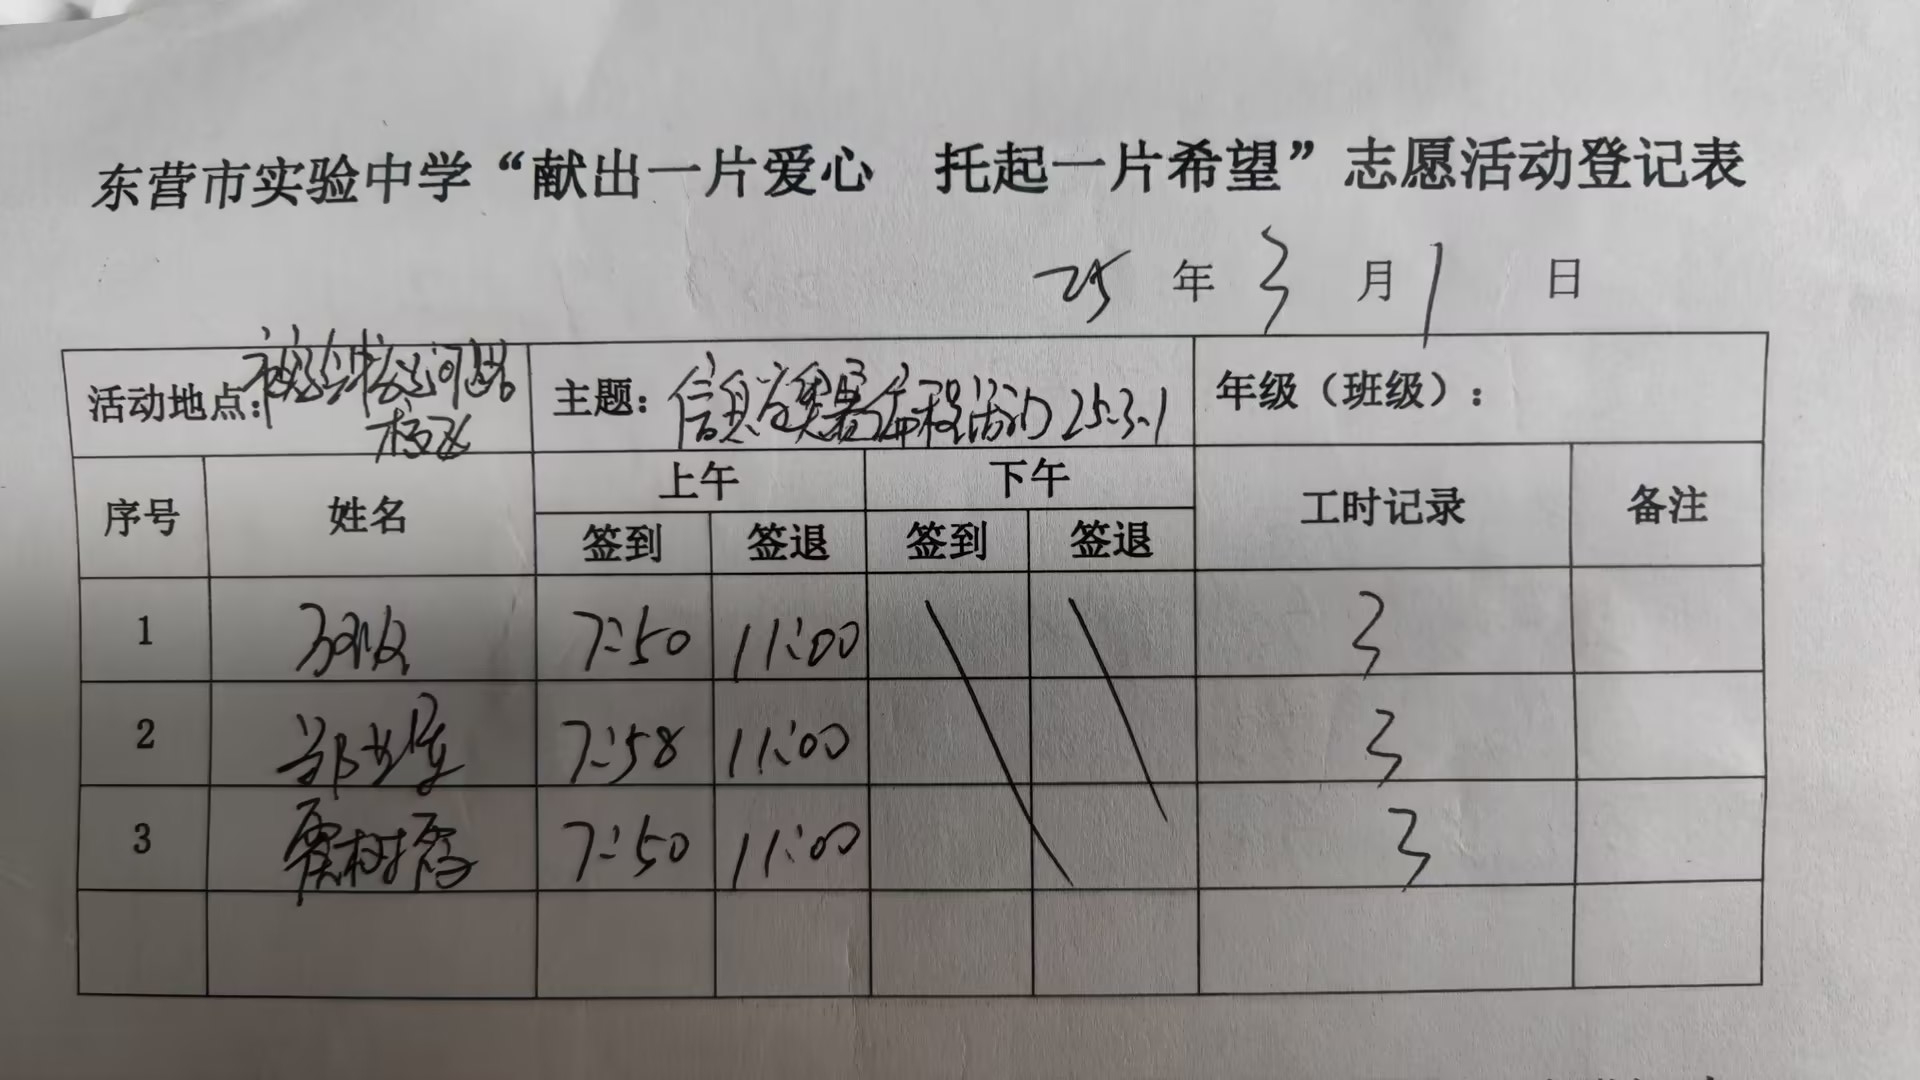 东营市实验中学“献出一片爱心 托起一片希望”志愿活动登记表
25 年 3 月 1 日
活动地点: 校区
主题: 信息学奥赛编程活动 25.3.1
年级（班级）:
序号 姓名 上午 下午 工时记录 备注
签到 签退 签到 签退
1 7:50 11:00 3
2 7:58 11:00 3
3 贾树 7:50 11:00 3